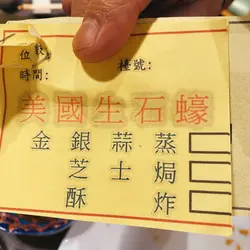 位數
時間: 檯號:
美國生石蠔
金銀蒜蒸
芝士焗
酥炸